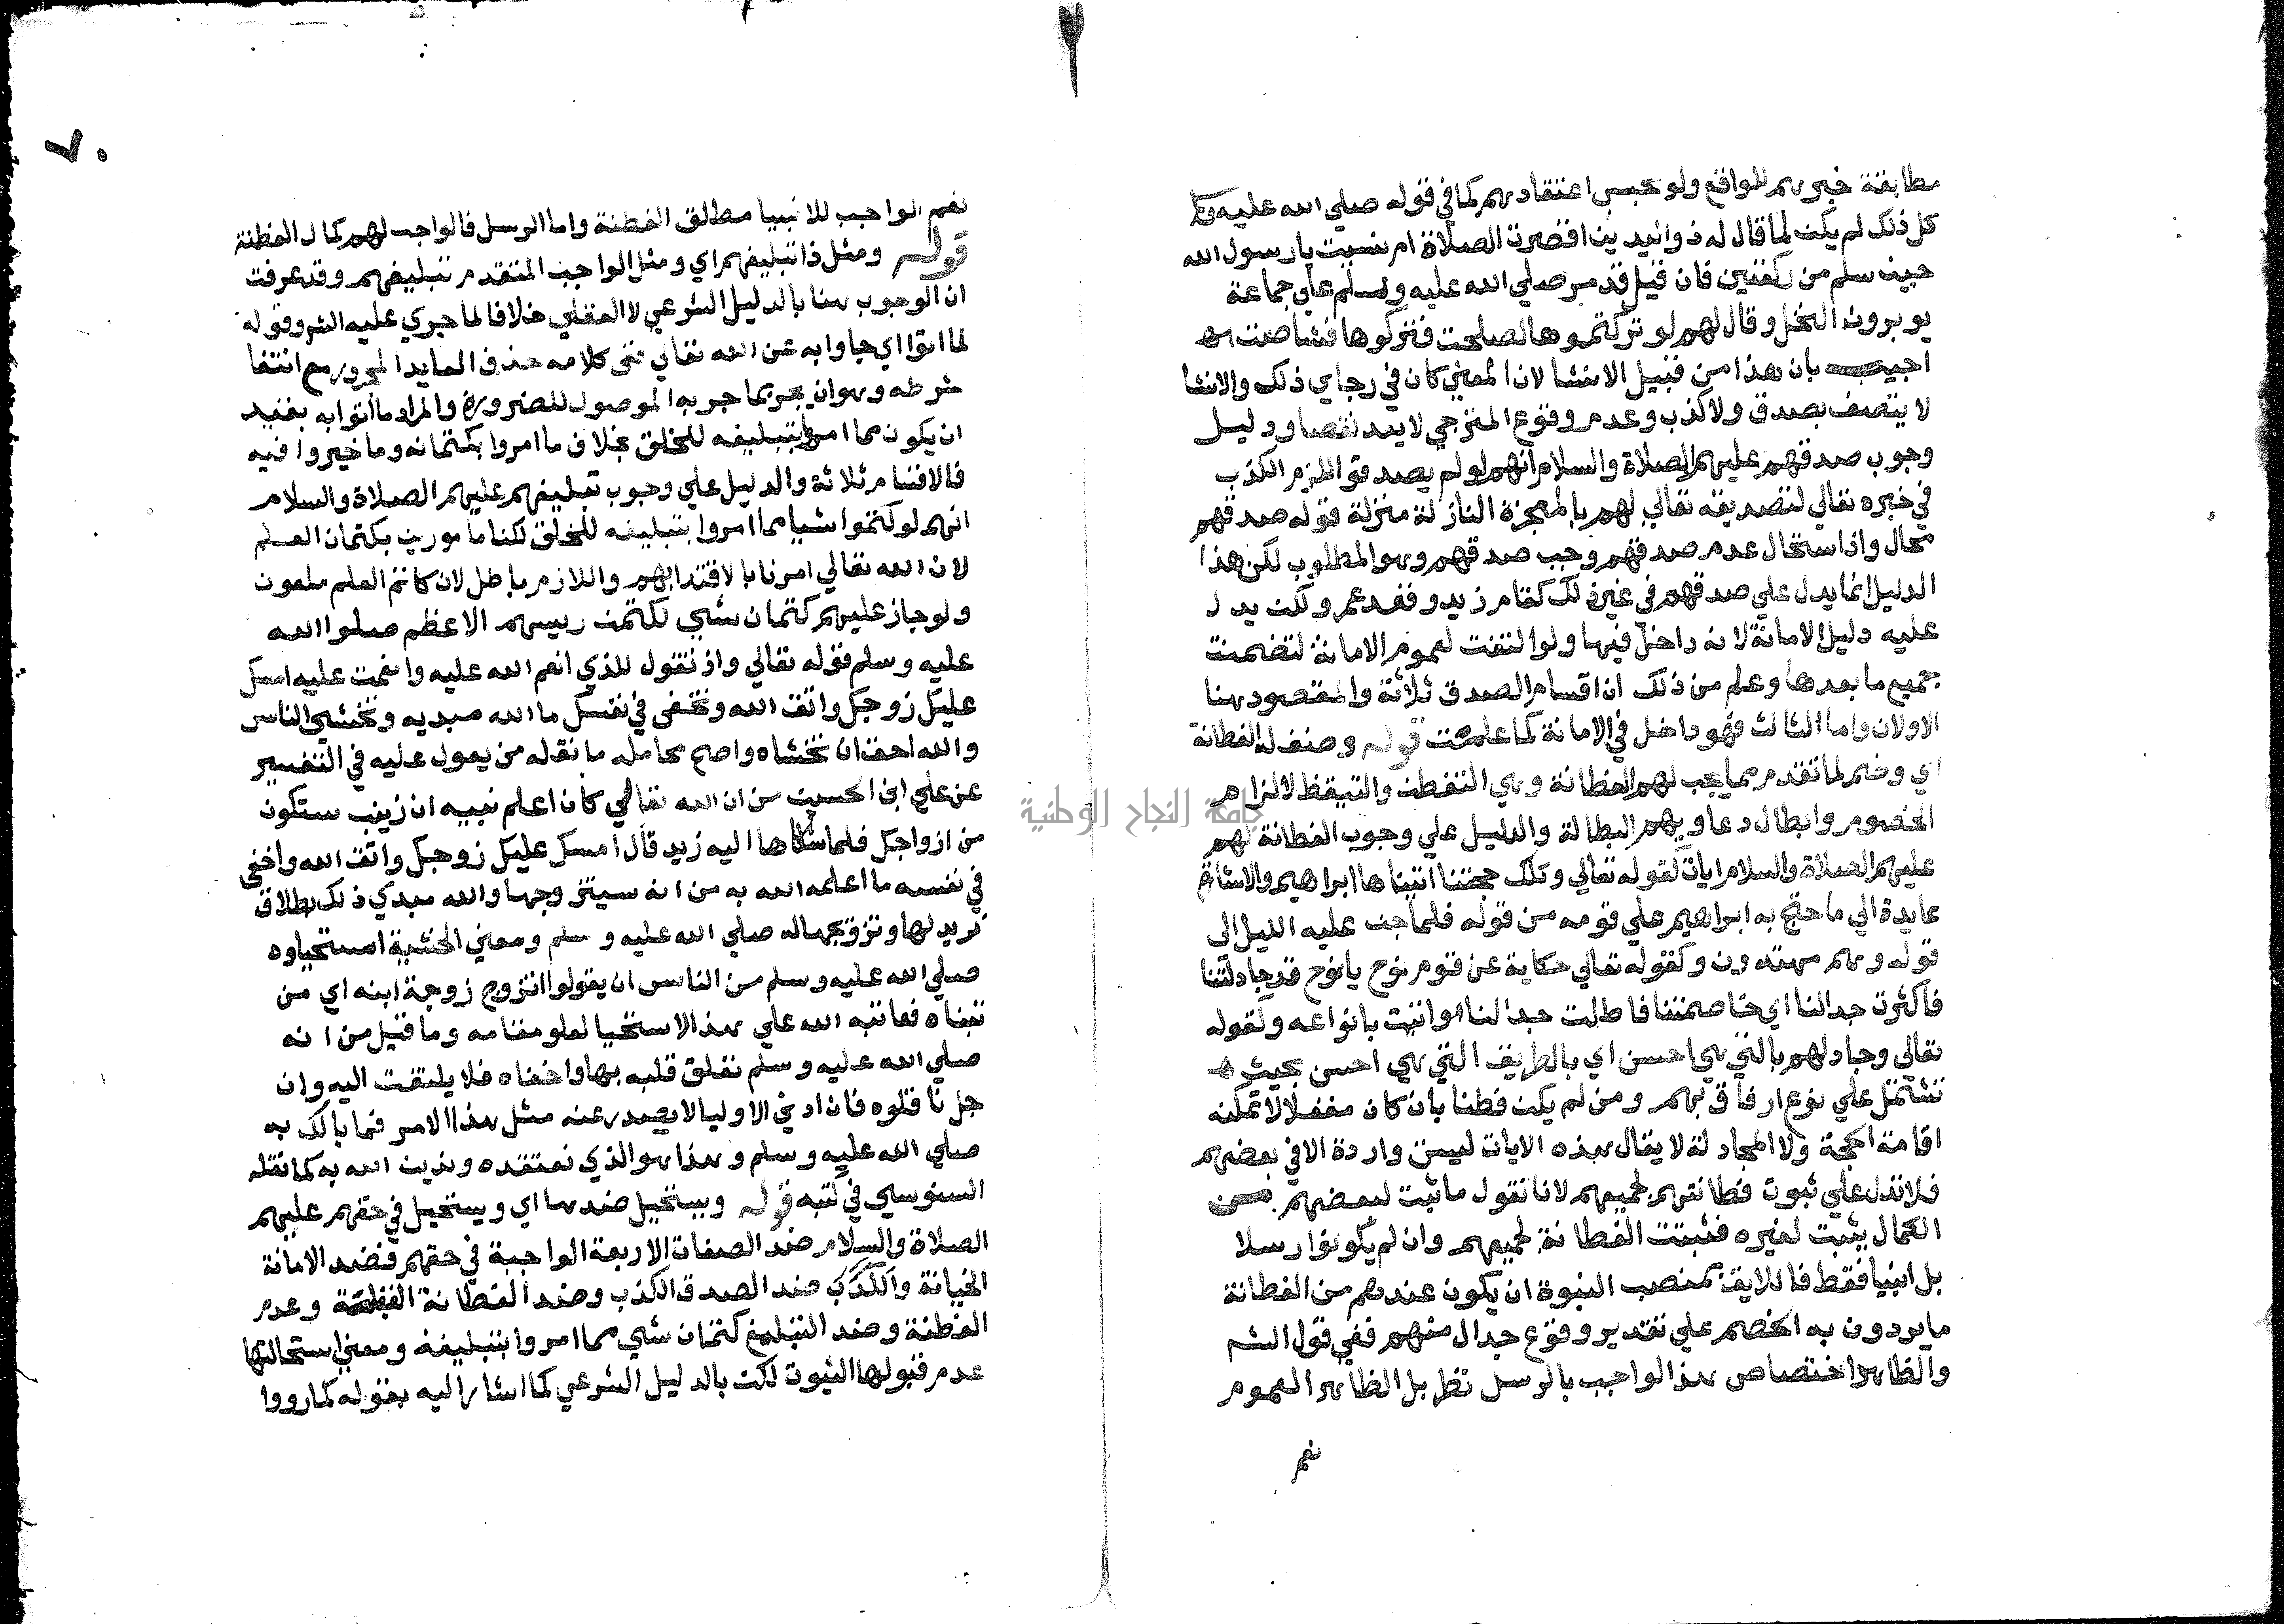 مطابقة خبرهم للواقع ولو بحسب اعتقادهم كما في قوله صلي الله عليه وسلم
كل ذلك لم يكن لما قال له ذو اليدين اقصرت الصلاة ام نسيت يا رسول الله
حين سلم من ركعتين فان قيل قد مر صلي الله عليه وسلم علي جماعة
يوبرون النخل وقال لهم لو تركتموها لصلحت فتركوها فشاصت
اجيب بان هذا من قبيل الانشا لان المعني كان في رجاي ذلك والانشا
لا يتصف بصدق ولا كذب وعدم وقوع المترجي لا يعد نقصا ودليل
وجوب صدقهم عليهم الصلاة والسلام انهم لو لم يصدقوا للزم الكذب
في خبره تعالي لتصديقه تعالي لهم بالمعجزة النازلة منزلة قوله صدقهم
محال واذا ستحال عدم صدقهم وجب صدقهم وهو المطلوب لكن هذا
الدليل انما يدل علي صدقهم في غير ذلك كقام زيد وقعد عمر ولكن يدل
عليه دليل الامانة لانه داخل فيها ولو التفت لعموم الامانة لتضمنت
جميع ما بعدها وعلم من ذلك ان اقسام الصدق ثلاثة والمقصود هنا
الاولان واما الثالث فهو داخل في الامانة كما علمت قوله وصف له الفطانة
اي وضم لما تقدم مما يجب لهم الفطانة وهي التفطن والتيقظ لالزام
الخصوم وابطال دعاويهم البطالة والدليل علي وجوب الفطانة لهم
عليهم الصلاة والسلام ايات كقوله تعالي وتلك حجتنا اتيناها ابراهيم والاشارة
عايدة الي ما حتج به ابراهيم علي قومه من قوله فلما جن عليه الليل الي
قوله وهم مهتدون وكقوله تعالي حكاية عن قوم نوح يا نوح قد جادلتنا
فاكثرت جدالنا اي خاصمتنا فاطلت جدالنا او اتيت بانواعه وكقوله
تعالي وجادلهم بالتي هي احسن اي بالطريق التي هي احسن بحيث
تشتمل علي نوع ارفاق بهم ومن لم يكن فطنا بان كان مغفلا لا تمكنه
اقامة الحجة ولا المجادلة لا يقال هذه الايات ليست واردة الا في بعضهم
فلا تدل علي ثبوت فطانتهم لجميعهم لانا نقول ما ثبت لبعضهم من
الكمال يثبت لغيره فثبتت الفطانة لجميعهم وان لم يكونوا رسلا
بل انبيا فقط فاللايق بمنصب النبوة ان يكون عندهم من الفطانة
ما يردون به الخصم علي تقدير وقوع جدال منهم ففي قول الشم
والظاهر اختصاص هذا الواجب بالرسل نظر بل الظاهر العموم
نعم
٧٠
نعم الواجب للانبيا مطالق الفطنة واما الرسل فالواجب لهم كمال الفطنة
قوله ومثل ذا تبليغهم اي ومثل الواجب المتقدم تبليغهم وقد عرفت
ان الوجوب هنا بالدليل الشرعي لا العقلي خلافا لما جري عليه الشر وقوله
لما اتوا اي جاوا به عن الله تعالي ففي كلامه حذف العايد المجرور مع انتفا
شرطه وهو ان يجر بما جر به الموصول للضرورة والمراد ما اتوا به بقيد
ان يكون مما امروا بتبليغه للخلق بخلاف ما امروا بكتمانه وما خيروا فيه
فالاقسام ثلاثة والدليل علي وجوب تبليغهم عليهم الصلاة والسلام
انهم لو كتموا شيا مما امروا بتبليغه للخلق لكنا مامورين بكتمان العلم
لان الله تعالي امرنا بالاقتدا بهم واللازم باطل لان كاتم العلم ملعون
ولو جاز عليهم كتمان شي لكتمت رييسهم الاعظم صلوا الله
عليه وسلم قوله تعالي واذ تقول للذي انعم الله عليه وانعمت عليه امسك
عليك زوجك واتق الله وتخفي في نفسك ما الله مبديه وتخشي الناس
والله احق ان تخشاه واصح محامله ما نقله من يعول عليه في التفسير
عن علي ابن الحسين من ان الله تعالي كان اعلم نبيه ان زينب ستكون
من ازواجك فلما شكاها اليه زيد قال امسك عليك زوجك واتق الله واخفي
في نفسه ما اعلمه الله به من انه سيتزوجها والله مبدي ذلك بطلاق
زيد لها وتزوجها له صلي الله عليه وسلم ومعني الخشية استحياوه
صلي الله عليه وسلم من الناس ان يقولوا تزوج زوجة ابنه اي من
تبناه فعاتبه الله علي هذا الاستحيا لعلو مقامه وما قيل من انه
صلي الله عليه وسلم تعلق قلبه بها واخفاه فلا يلتفت اليه وان
جل ناقلوه فان ادني الاوليا لا يصدر عنه مثل هذا الامر فما بالك به
صلي الله عليه وسلم وهذا هو الذي نعتقده وندين الله به كما نقله
السنوسي في كتبه قوله ويستحيل ضدها اي ويستحيل في حقهم عليهم
الصلاة والسلام ضد الصفات الاربعة الواجبة في حقهم فضد الامانة
الخيانة والكذب ضد الصدق الكذب وضد الفطانة الغفلة وعدم
الفطنة وضد التبليغ كتمان شي مما امروا بتبليغه ومعني استحالتها
عدم قبولها الثبوت لكن بالدليل الشرعي كما اشار اليه بقوله كما رووا
جامعة النجاح الوطنية